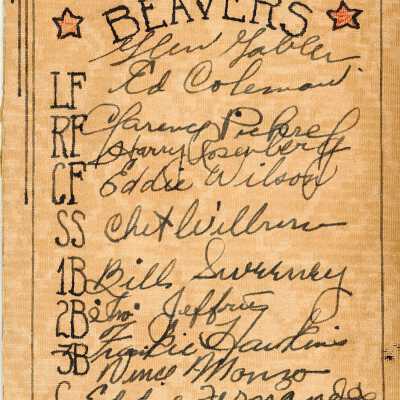 BEAVERS
Glen Gabler
Ed Coleman
LF
Clarence Pickrel
RF Harry Rosenberg
CF Eddie Wilson
SS Chet Wilburn
1B Bill Sweeney
2B Jeffries
Frankie Hawkins
3B Vince Monzo
C Eddie Fernandes